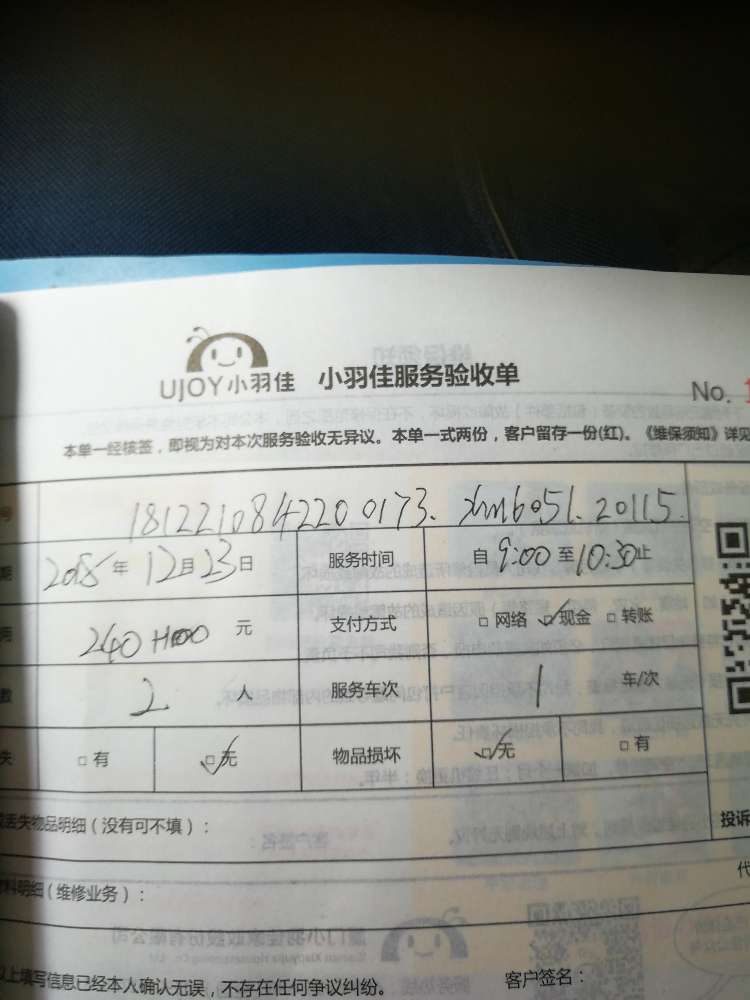 UJOY小羽佳 小羽佳服务验收单
No. 1
本单一经核签，即视为对本次服务验收无异议。本单一式两份，客户留存一份(红)。《维保须知》详见
号 181221084220 0173. xm6051.20115.
期 2018年12月23日 服务时间 自9:00至10:30止
用 240+100 元 支付方式 □网络 ☑现金 □转账
数 2 人 服务车次 1 车/次
失 □有 ☑无 物品损坏 ☑无 □有
或丢失物品明细（没有可不填）：
投诉
材料明细（维修业务）：
代
以上填写信息已经本人确认无误，不存在任何争议纠纷。 客户签名：